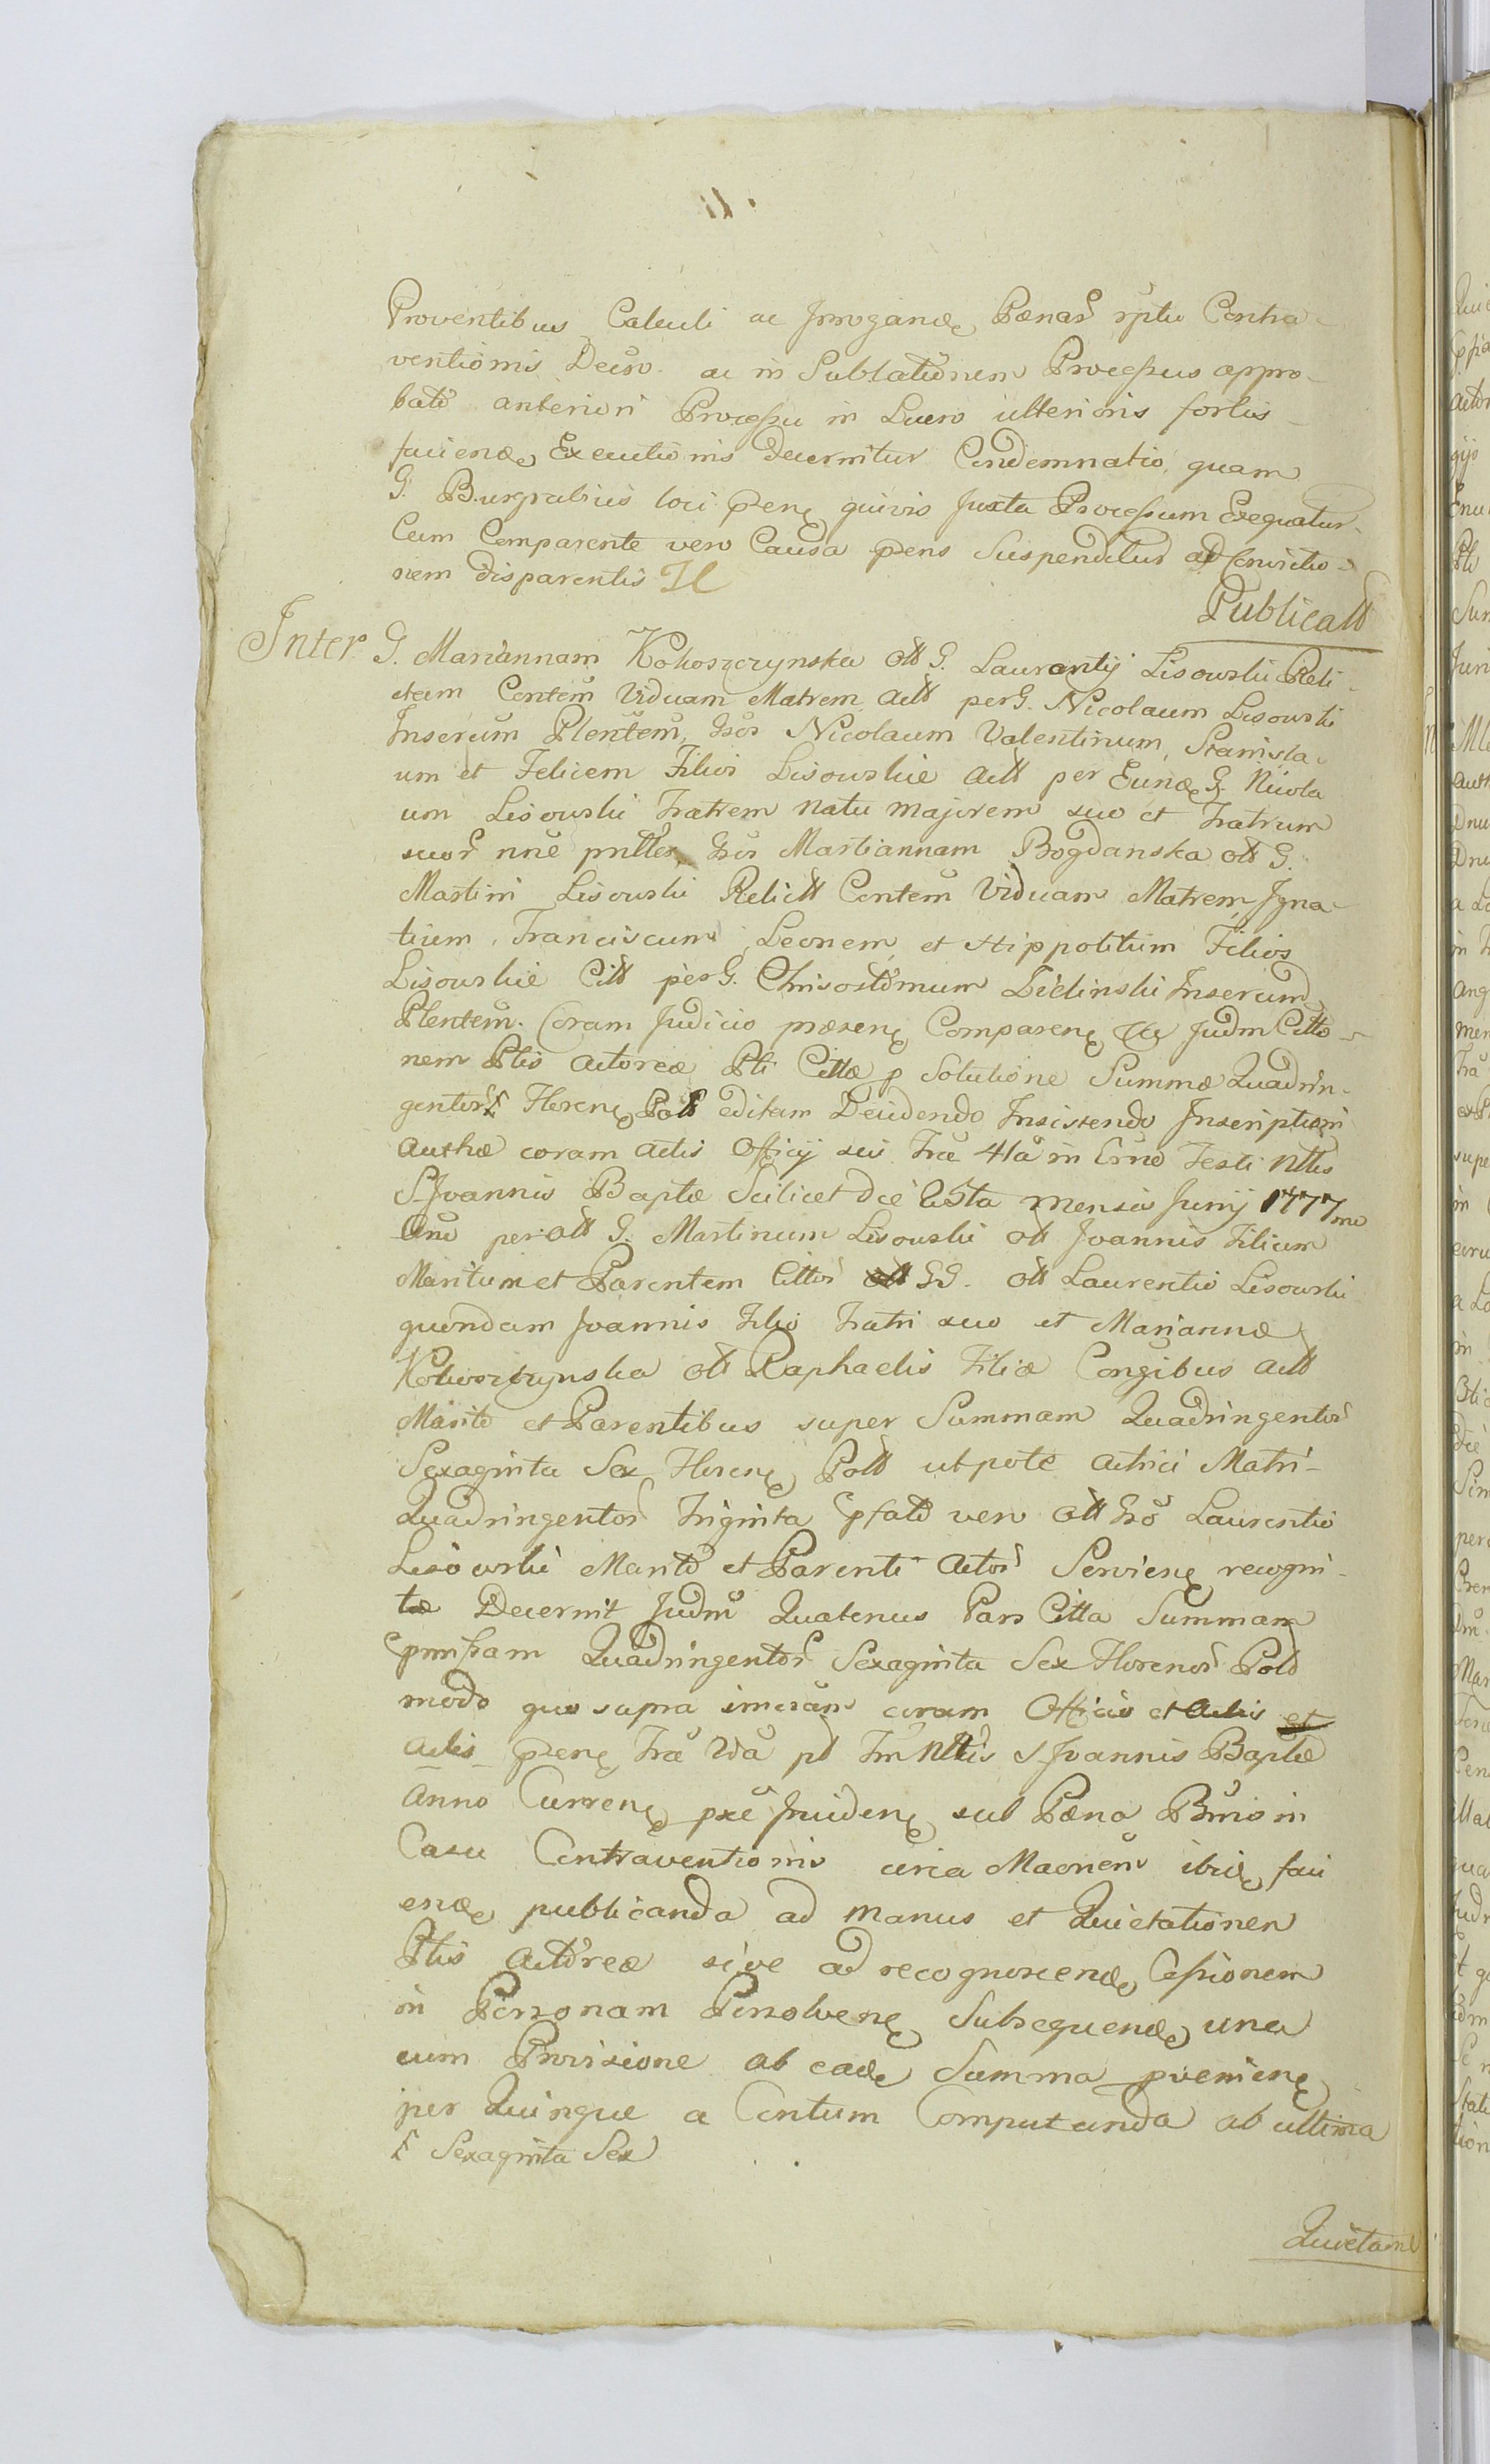 Proventibus Calculi ac Irrogandæ Pænar rptu Contra-
ventionis Decisv. ac in Sublationem Processus appro-
bato anteriori Processu in Lucro ulterioris fortis
faciendæ Executionis decernitur Condemnatio, quam
G. Burgrabius loci præsens quivis Juxta Processum Exequatur.
Cum Comparente vero Causa præsens Suspenditur ad Convictio-
nem disparentis
Publicatt
Inter G. Mariannam Kokoszczynska ott G. Laurentij Lisowski Reli-
ctam Contem Viduam Matrem Actt per G. Nicolaum Lisowski
Inserum Plentem, Gsos Nicolaum Valentinum, Stanisla-
um et Felicem Filios Lisowskie Actt per Eundem G. Nicola
um Lisowski Fratrem natu majorem suo et Fratrum
suor nne pnttes, Gsos Martiannam Bogdanska ott G.
Martini Lisowski Relictt Contem Viduam Matrem, Igna-
tium, Franciscum, Leonem, et Hippolitum Filios
Lisowskie Citt per G. Chrisostomum Zielinski Inserum
Plentem. Coram Judicio præsen Comparen Judm Citto-
nem Ptis Actoreæ Pti Cittæ p Solutione Summæ Quadrin-
gentor Floren Poll editam Decidendo Insistendo Inscriptioni
Authæ coram Actis Officij sui Fra 4ta in Crno Festi Nttis
S. Joannis Baptæ Scilicet die 25ta mensis Junij 1777mo
Ano per ott G. Martinum Lisowski ott Joannis Filium
Maritum et Parentem Cittor GG. ott Laurentio Lisowski
quondam Joannis Filio Fratri suo et Mariannæ
Kokoszczynska ott Raphaelis Filiæ Congibus Actt
Marito et Parentibus super Summam Quadringentor
Sexaginta Sex Floren Poll utpote Actrici Matri-
Quadringentor Triginta pfato vero ott Gso Laurentio
Lisowski Marito et Parenti Actor Servien recogni-
tæ Decernit Judm Quatenus Pars Citta Summam
pmissam Quadringentor Sexaginta Sex Florenor Pold
modo quo supra coram Officio et Actis et
Actis præsen Fra 2da pt Fm Nttis S Joannis Baptæ
Anno Curren pxe Inciden sub Pæna Bmis in
Casu Contraventionis circa Maonem ibid faci
endæ publicanda ad manus et Quietationem
Ptis Actoreæ sive ad recognoscendæ Cessionem
in Personam Persolven Subsequendæ una
cum Provisione ab eade Summa provenien
per Quinque a Centum Computanda ab ultima
Sexaginta Sex
Quietane